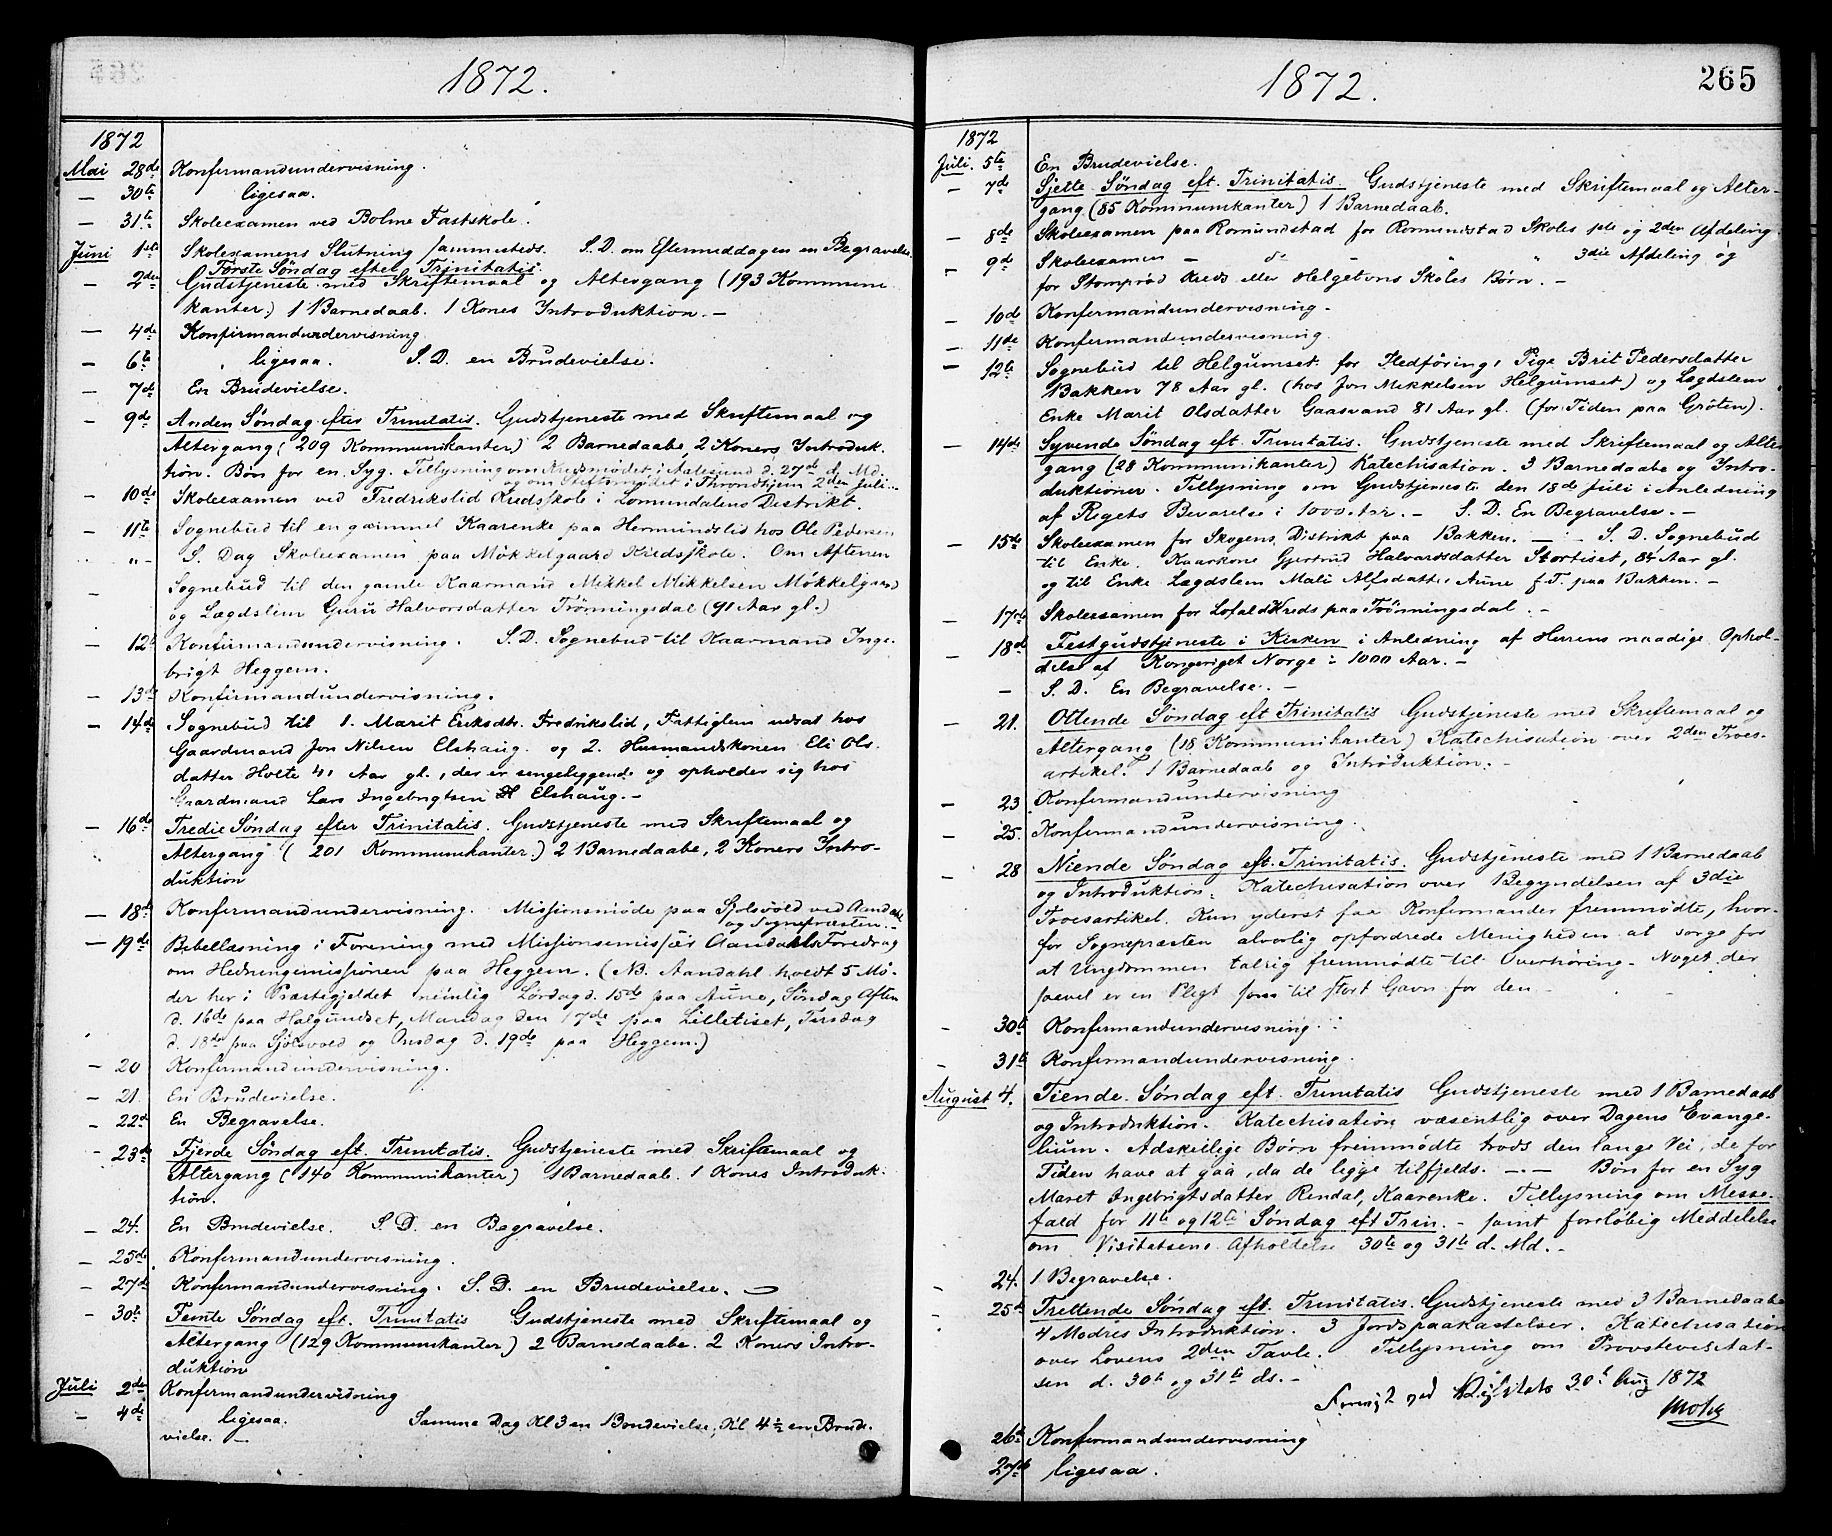 1872.
1872
Mai 28de Konfermandundervisning.
— 30te ligesaa.
— 31te Skoleexamen ved Bolme Fastskole.
Juni 1ste Skolexamens Slutning sammesteds. S.D. om Eftermiddagen en Begravelse.
Første Søndag efter Trinitatis.
— 2den Gudstjeneste med Skriftemaal og Altergang (193 Kommuni
kanter.) 1 Barnedaab. 1 Kones Introduktion. —
— 4de Konfirmandundervisning
— 6te ligesaa. S.D. en Brudevielse.
— 7de En Brudevielse.
— 9de Anden Søndag efter Trinitatis. Gudstjeneste med Skriftemaal og
Altergang (209 Kommunikanter) 2 Barnedaabe, 2 Koners Introduk
tion. Bøn for en Syg. Tillysning om Kredsmødet i Aalesund d. 27de d. Md.
og om Stiftsmødet i Throndhjem 2den Juli. —
— 10de Skoleexamen ved Fredrikslid Kredsskole i Lomundalens Distrikt.
— 11te Sognebud til en gammel Kaarenke paa Hermundslid hos Ole Pedersen
„ — S. Dag Skoleexamen paa Møkkelgaard Kredsskole. Om Aftenen
Sognebud til den gamle Kaarmand Mekkel Mikkelsen Møkkelgaard
og Lægdslem Guru Halvorsdatter Trønningsdal (91 Aar gl.)
— 12te Konfirmandundervisning. S.D. Sognebud til Kaarmand Inge
brigt Heggem.
— 13de Konfirmandundervisning.
— 14de Sognebud til 1. Marit Eriksdtr. Fredrikslid, Fattiglem udsat hos
Gaardmand Jon Nilsen Elshaug. og 2. Husmandskonen Eli Ols
datter Holte 41 Aar gl., der er sengeliggende og opholder sig hos
Gaardmand Lars Ingebrigtsen Elshaug. —
— 16de Tredie Søndag efter Trinitatis. Gudstjeneste med Skriftemaal og
Altergang (201 Kommunikanter.) 2 Barnedaabe, 2 Koners Intro-
duktion
— 18de Konfermandundervisning. Missionsmøde paa Sjølsvold ved Aandahl
og Sognepræsten. —
— 19de Bibellæsning i Forening med Missionsemissær Aandahls Foredrag
om Hedningemissionen paa Heggem. (NB. Aandahl holdt 5 Mø-
der her i Præstegjeldet nemlig Lørdag d. 15de paa Aune, Søndag Aften
d. 16de paa Halgundset, Mandag den 17de paa Lilletiset, Tirsdag
d. 18de paa Sjølsvold og Onsdag d. 19de paa Heggem.)
— 20 Konfermandundervisning.
— 21. En Brudevielse.
— 22de En Begravelse.
— 23de Fjerde Søndag eft. Trinitatis. Gudstjeneste med Skriftemaal og
Altergang (140 Kommunikanter) 1 Barnedaab. 1 Kones Introduk-
tion.
— 24. En Brudevielse. S.D. en Begravelse.
— 25de Konfermandundervisning.
— 27de Konfermandundervisning. S.D. en Brudevielse. —
— 30te Femte Søndag eft. Trinitatis Gudstjeneste med Skriftemaal og
Altergang (129 Kommunikanter) 2 Barnedaabe. 2 Koners Intro-
duktion
Juli 2den Konfermandundervidning
— 4de ligesaa. Samme Dag Kl 3 en Bondevielse, Kl. 4½ en Brude-
vielse. —
1872. 265
1872
Juli. 5te En Brudevielse.
— 7de Sjette Søndag eft. Trinitatis. Gudstjeneste med Skriftemaal og Alter-
gang (85 Kommunikanter) 1 Barnedaab.
— 8de Skoleexamen paa Romundstad for Romundstad Skoles 1ste og 2den Afdeling.
— 9de Skoleexamen — do — „ „ 3die Afdeling og
for Stomprød Kreds eller Helgetuns Skoles Børn. —
— 10de Konfermandundervisning —
— 11de Konfermandundervisning
— 12te Sognebud til Helgumset for Pledføring, Pige Brit Pedersdatter
Bakken 78 Aar gl. (hos Jon Mikkelsen Helgumset) og Lægdslem
Enke Marit Olsdatter Gaasvand 81 Aar gl. (for Tiden paa Grøten).
— 14de Syvende Søndag eft. Trinitatis. Gudstjeneste med Skriftemaal og Alter
gang (28 Kommunikanter) Katechisation. 3 Barnedaabe og Intro-
duktioner. Tillysning om Gudstjeneste den 18de Juli i Anledning
af Rigets Bevarelse i 1000 Aar. — S.D. En Begravelse. —
— 15de Skoleexamen for Skogens Distrikt paa Bakken. — S.D. Sognebud
til Enke. Kaarkone Gjertrud Halvardsdatter Stortiset, 84 Aar gl.
og til Enke Lægdslem Mali Alfsdatter Aune f.T. paa Bakken. —
— 17de Skoleexamen for Lofald Kreds paa Trønningsdal. —
— 18de Festgudstjeneste i Kirken i Anledning af Herrens naadige Ophol-
delse af Kongeriget Norge i 1000 Aar. —
— S.D. En Begravelse. —
— 21. Ottende Søndag eft Trinitatis Gudstjeneste med Skriftemaal og
Altergang (18 Kommunikanter) Katechisation over 2den Troes-
artikel. 1 Barnedaab og Introduktion. —
— 23 Konfermandundervisning
— 25. Konfermandundervisning.
— 28 Niende Søndag eft. Trinitatis. Gudstjeneste med 1 Barnedaab
og Introduktion. Katechisation over Begyndelsen af 3die
Troesartikel. Kun yderst faa Konfermander fremmødte, hvor-
for Sognepræsten alvorlig opfordrede Menigheden at sørge for
at Ungdommen talrig fremmødte til Overhøring. Noget der
saavel er en Pligt som til stort Gavn for den —
— 30te Konfermandundervisning.
— 31te Konfermandundervisning.
August 4. Tiende Søndag eft. Trinitatis Gudstjeneste med 1 Barnedaab
og Introduktion. Katechisation væsentlig over Dagens Evange-
lium. Adskellige Børn fremmødte trods den lange Vei, de for
Tiden have at gaa, da de ligge tilfjelds. —.— Bøn for en Syg
Maret Ingebrigtsdatter Rendal, Kaarenke. Tillysning om Messe-
fald for 11te og 12te Søndag eft Trin. — samt foreløbig Meddelelse
om Visitatsens Afholdelse 30te og 31te d. Md. —
— 24. 1 Begravelse.
— 25de Trettende Søndag eft. Trinitatis. Gudstjeneste med 3 Barnedaabe
4 Mødres Introduktion. 3 Jordspaakastelser. Katechisation
over Lovens 2den Tavle. Tillysning om Provstevisitat-
sen d. 30te og 31te ds. —
30t Aug 1872
26de Konfermandundervisning
27de ligesaa.